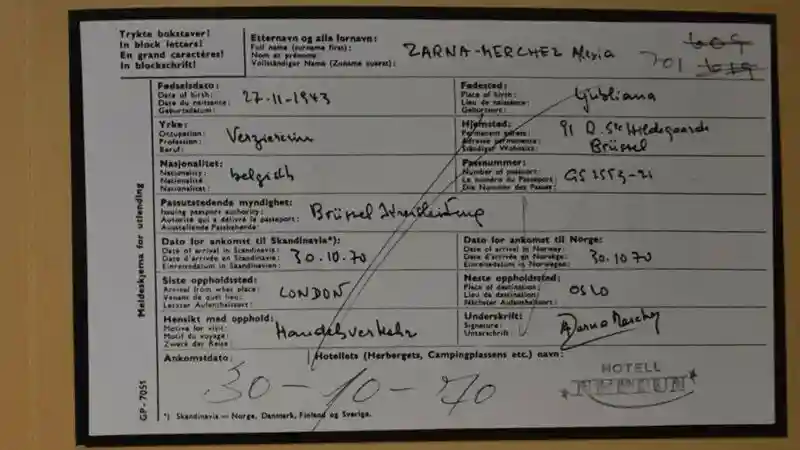 Trykte bokstaver!
In block letters!
En grand caractères!
In blockschrift!
Etternavn og alla fornavn:
Full name (surname first):
Nom et prénoms:
Vollständiger Name (Zuname zuerst):
ZARNA-MERCHEZ Alexia
701
609
Fødselsdato:
Date of birth:
Date du naissance:
Geburtsdatum:
27-11-1943
Fødested:
Place of birth:
Lieu de naissance:
Geburtsort:
Ljubliana
Yrke:
Occupation:
Profession:
Beruf:
Verziererin
Hjemsted:
Permanent adress:
Adresse permanente:
Ständiger Wohnsitz:
91 R. Ste Hildegaarde
Brüssel
Nasjonalitet:
Nationality:
Nationalité
Nationalitat:
belgisch
Passnummer:
Number of passport:
Le numéro du Passeport:
Die Nummer des Passes:
Passutstedende myndighet:
Issuing passport authority:
Autorité qui a délivré le passeport:
Ausstellende Passbehörde:
Brüssel
Dato for ankomst til Skandinavia*):
Date of arrival in Skandinavia:
Date d'arrivée en Scandinavie:
Einreisedatum in Skandinavien:
30.10.70
Dato for ankomst til Norge:
Date of arrival in Norway:
Date d'arrivée en Norvège:
Einreisedatum in Norwegen:
30.10 70
Siste oppholdssted:
Arrival from what place:
Venant de quel lieu:
Letzter Aufenthaltsort:
LONDON
Neste oppholdssted:
Place of destination:
Lieu du destination:
Nächster Aufenthaltsort:
OSLO
Hensikt med opphold:
Motive for visit:
Motif du voyage:
Zweck der Reise
Handelsverkehr
Underskrift:
Signature:
Unterschrift
Ankomstdato:
Hotellets (Herbergets, Campingplassens etc.) navn:
30-10-70
HOTELL
*) Skandinavia — Norge, Danmark, Finland og Sverige.
Meldeskjema for utlending
GP-7051